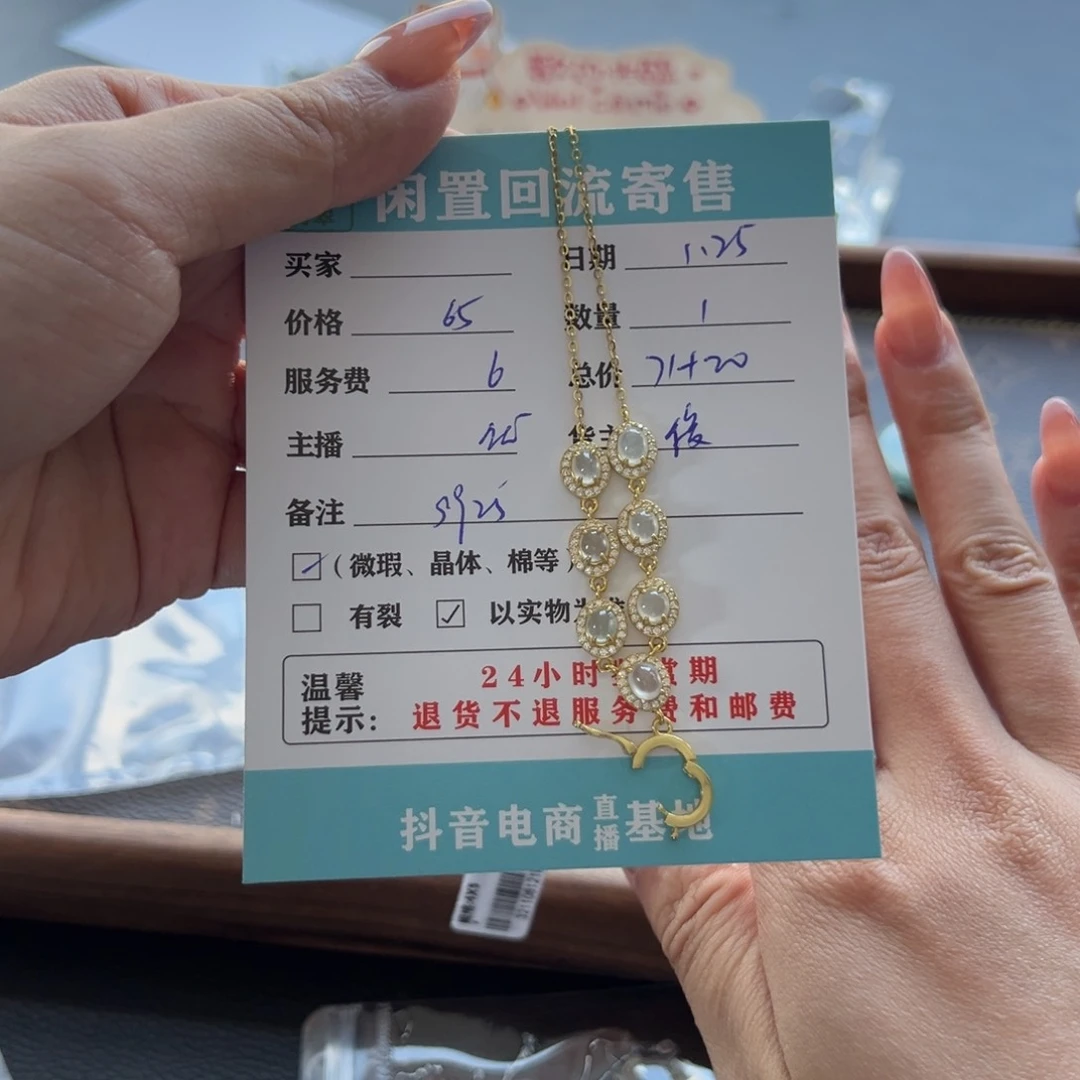 闲置回流寄售
买家 日期 1.25
价格 65 数量 1
服务费 6 总价 71+20
主播 货主 俊
备注 S925
(微瑕、晶体、棉等)
有裂 以实物为准
温馨提示: 24小时 赏期
退货不退服务费和邮费
抖音电商直播基地